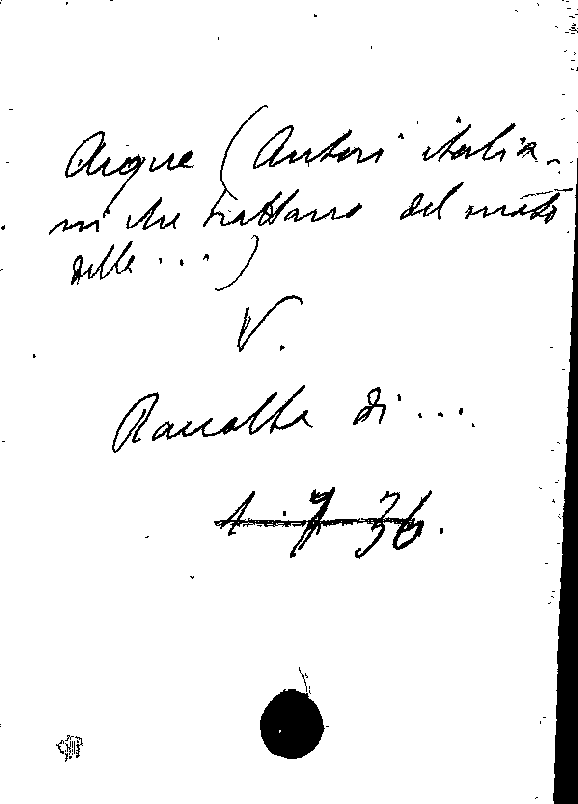 Acque (Autori italia-
ni che trattano del moto
delle ...)
V.
Raccolta di ...
1. 7 36.